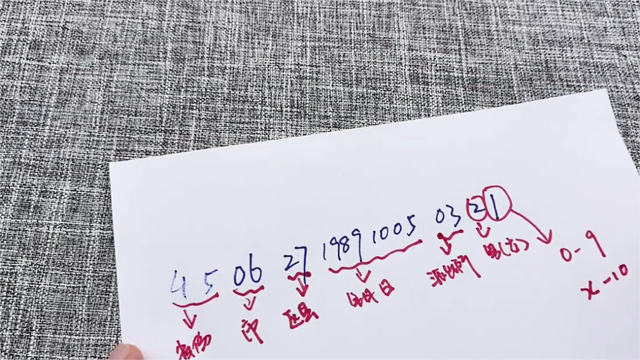 45 06 27 19891005 03 2 1
省份 市 区县 出生日 派出所 男(女) 0-9
x-10